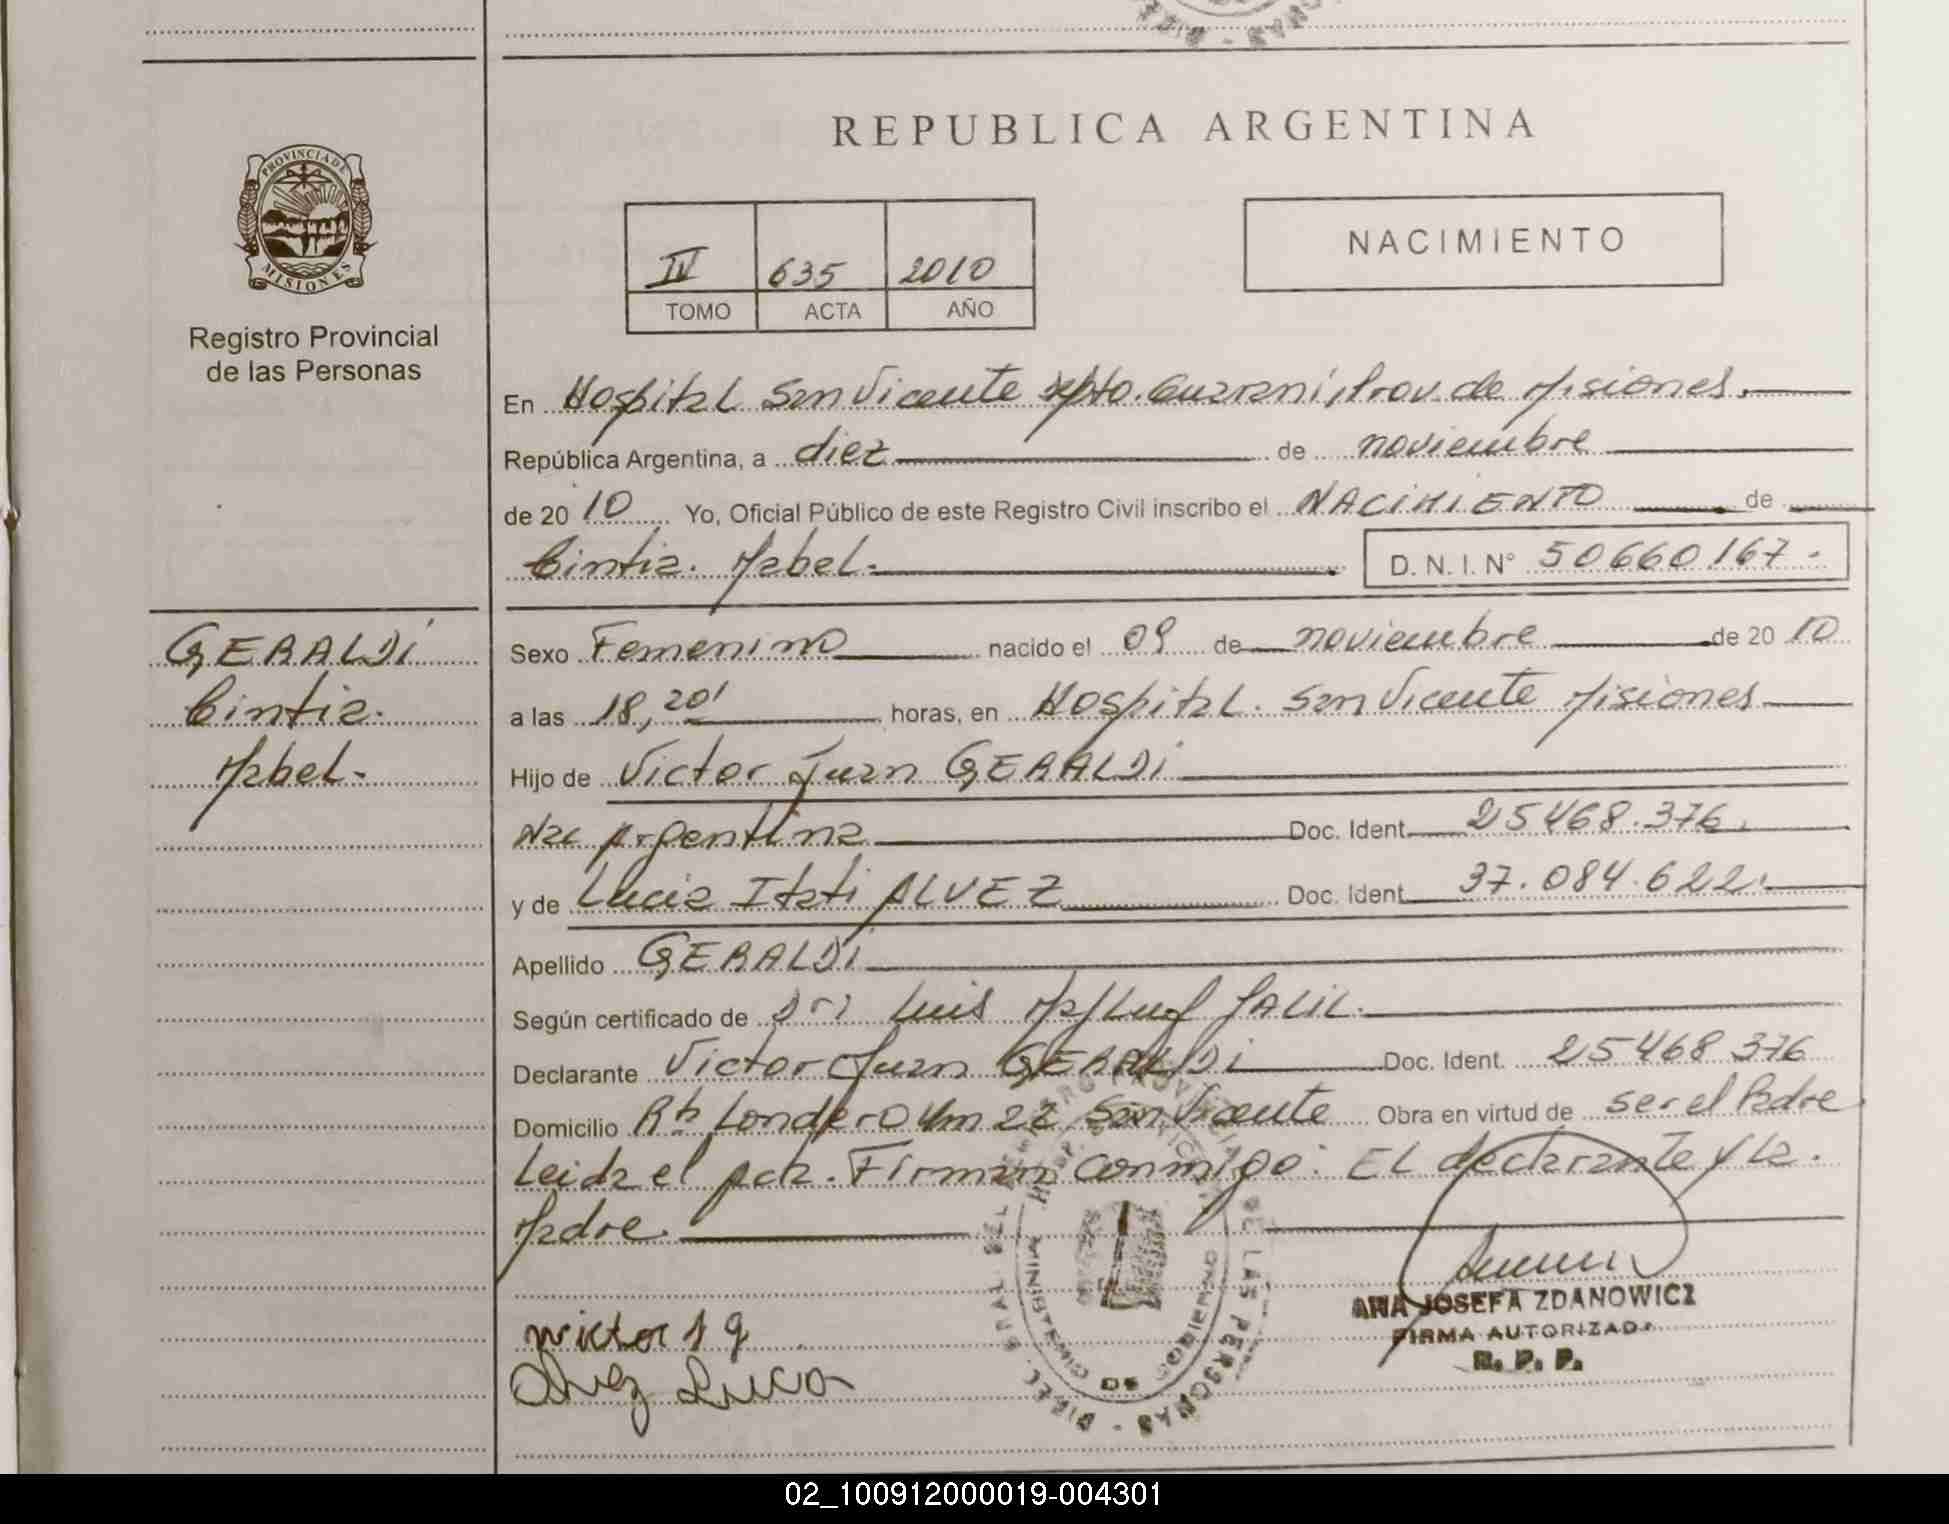 REPUBLICA ARGENTINA
PROVINCIA DE
MISIONES
Registro Provincial
de las Personas
IV 635 2010
TOMO ACTA AÑO
NACIMIENTO
En Hospital San Vicente Dpto. Guarani, Prov. de Misiones.
República Argentina, a diez de noviembre
de 20 10 Yo, Oficial Público de este Registro Civil inscribo el NACIMIENTO de
Cintia Mabel. D. N. I. N° 50660167.
GERALDI
Cintia
Mabel.
Sexo Femenino nacido el 09 de noviembre de 20 10
a las 18,20' horas, en Hospital San Vicente Misiones
Hijo de Victor Juan GERALDI
Nac Argentina Doc. Ident. 25468.376.
y de Lucia Itati ALVEZ Doc. Ident. 37.084.622.
Apellido GERALDI
Según certificado de Dr. Luis JALIL.
Declarante Victor Juan GERALDI Doc. Ident. 25468376
Domicilio Londero Km 22 San Vicente Obra en virtud de ser el Padre
Leida el Acta. Firman conmigo: El declarante y la
Madre
wictor J g
Alvez Luca
ANA JOSEFA ZDANOWICZ
FIRMA AUTORIZADA
R. P. P.
DE LAS PERSONAS
MINISTERIO DE GOBIERNO
02_100912000019-004301